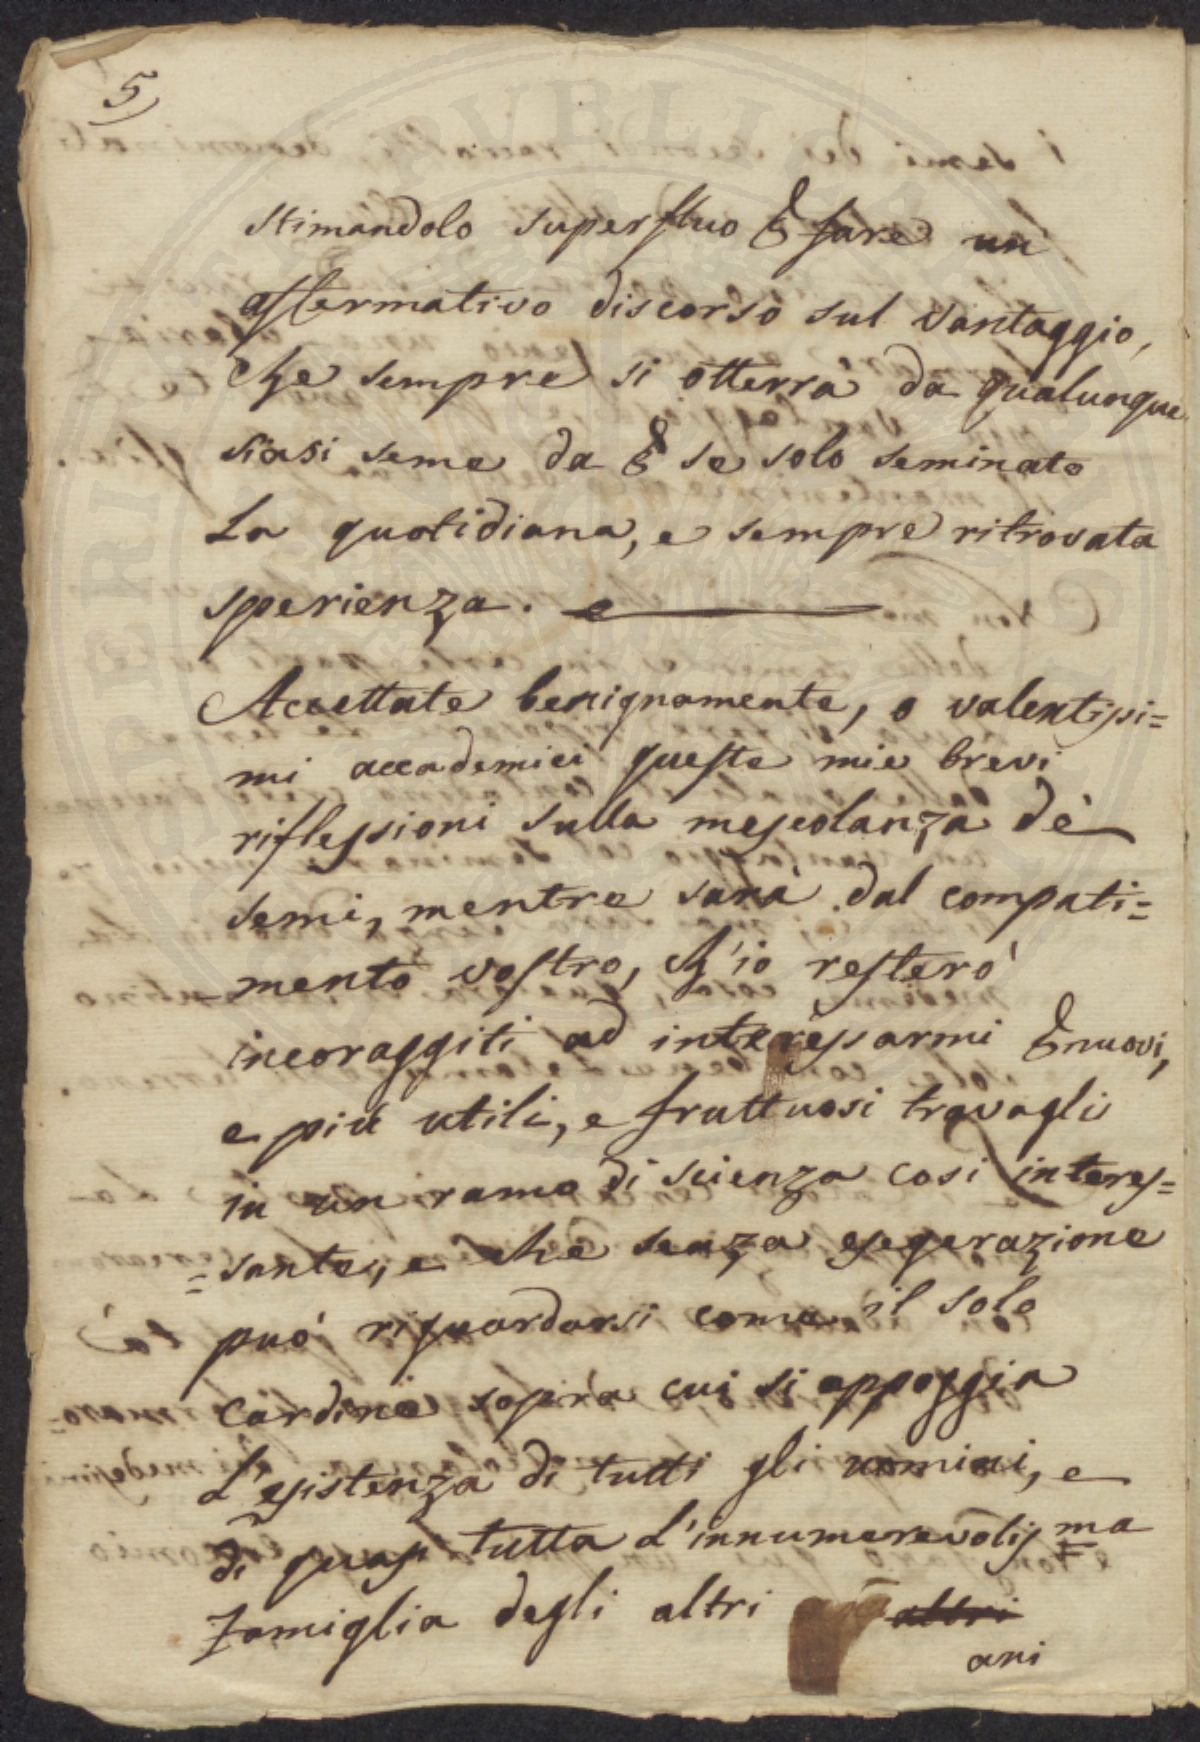 5)
stimandolo superfluo ꝑ fare un
affermativo discorso sul vantaggio,
che sempre si otterrà da qualunque
siasi seme da ꝑ se solo seminato
La quotidiana, e sempre ritrovata
sperienza.
Accettate benignamente, o valentissi=
mi accademici queste mie brevi
riflessioni sulla mescolanza dè
semi, mentre sarà dal compati=
mento vostro, ch'io resterò
incoraggiti ad interessarmi ꝑ nuovi,
e più utili, e fruttuosi travagli
in un ramo di scienza cosi interes=
=sante, e che senza esegerazione
può risguardarsi come il solo
Cardine sopra cui si appoggia
L'esistenza di tutti gli uomini, e
di quasi tutta L'innumerevolissma
Famiglia degli altri altri
ani